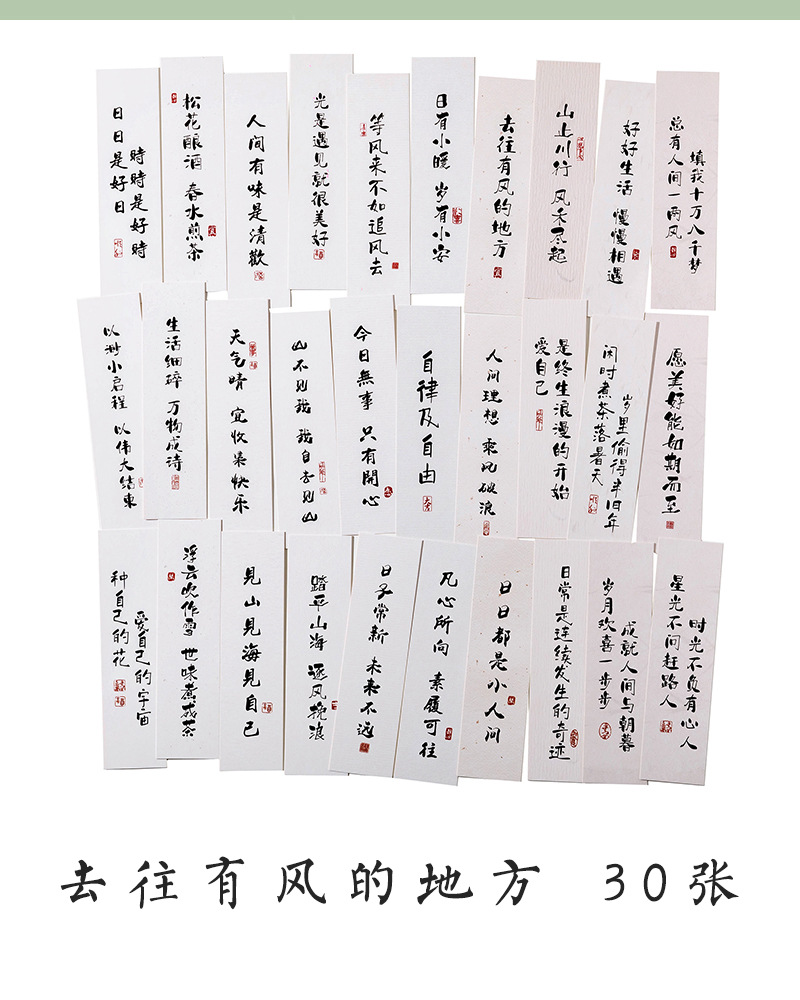 日日是好日
時時是好時
松花酿酒 春水煎茶
人间有味是清歡
光是遇见就很美好
等风来不如追风去
日有小暖 岁有小安
去往有风的地方
山止川行 风禾尽起
好好生活 慢慢相遇
总有人间一两风
填我十万八千梦
以渺小启程 以伟大结束
生活细碎 万物成诗
天气晴 宜收集快乐
山不见我 我自去见山
今日無事 只有開心
自律及自由
人间理想 乘风破浪
爱自己
是终生浪漫的开始
闲时煮茶落暑天
岁里偷得半旧年
愿美好能如期而至
种自己的花
爱自己的宇宙
浮云吹作雪 世味煮成茶
見山見海見自己
踏平山海 逐风挽浪
日子常新 未来不远
凡心所向 素履可往
日日都是小人间
日常是连续发生的奇迹
岁月欢喜一步步
成就人间与朝暮
星光不问赶路人
时光不负有心人
去往有风的地方 30张